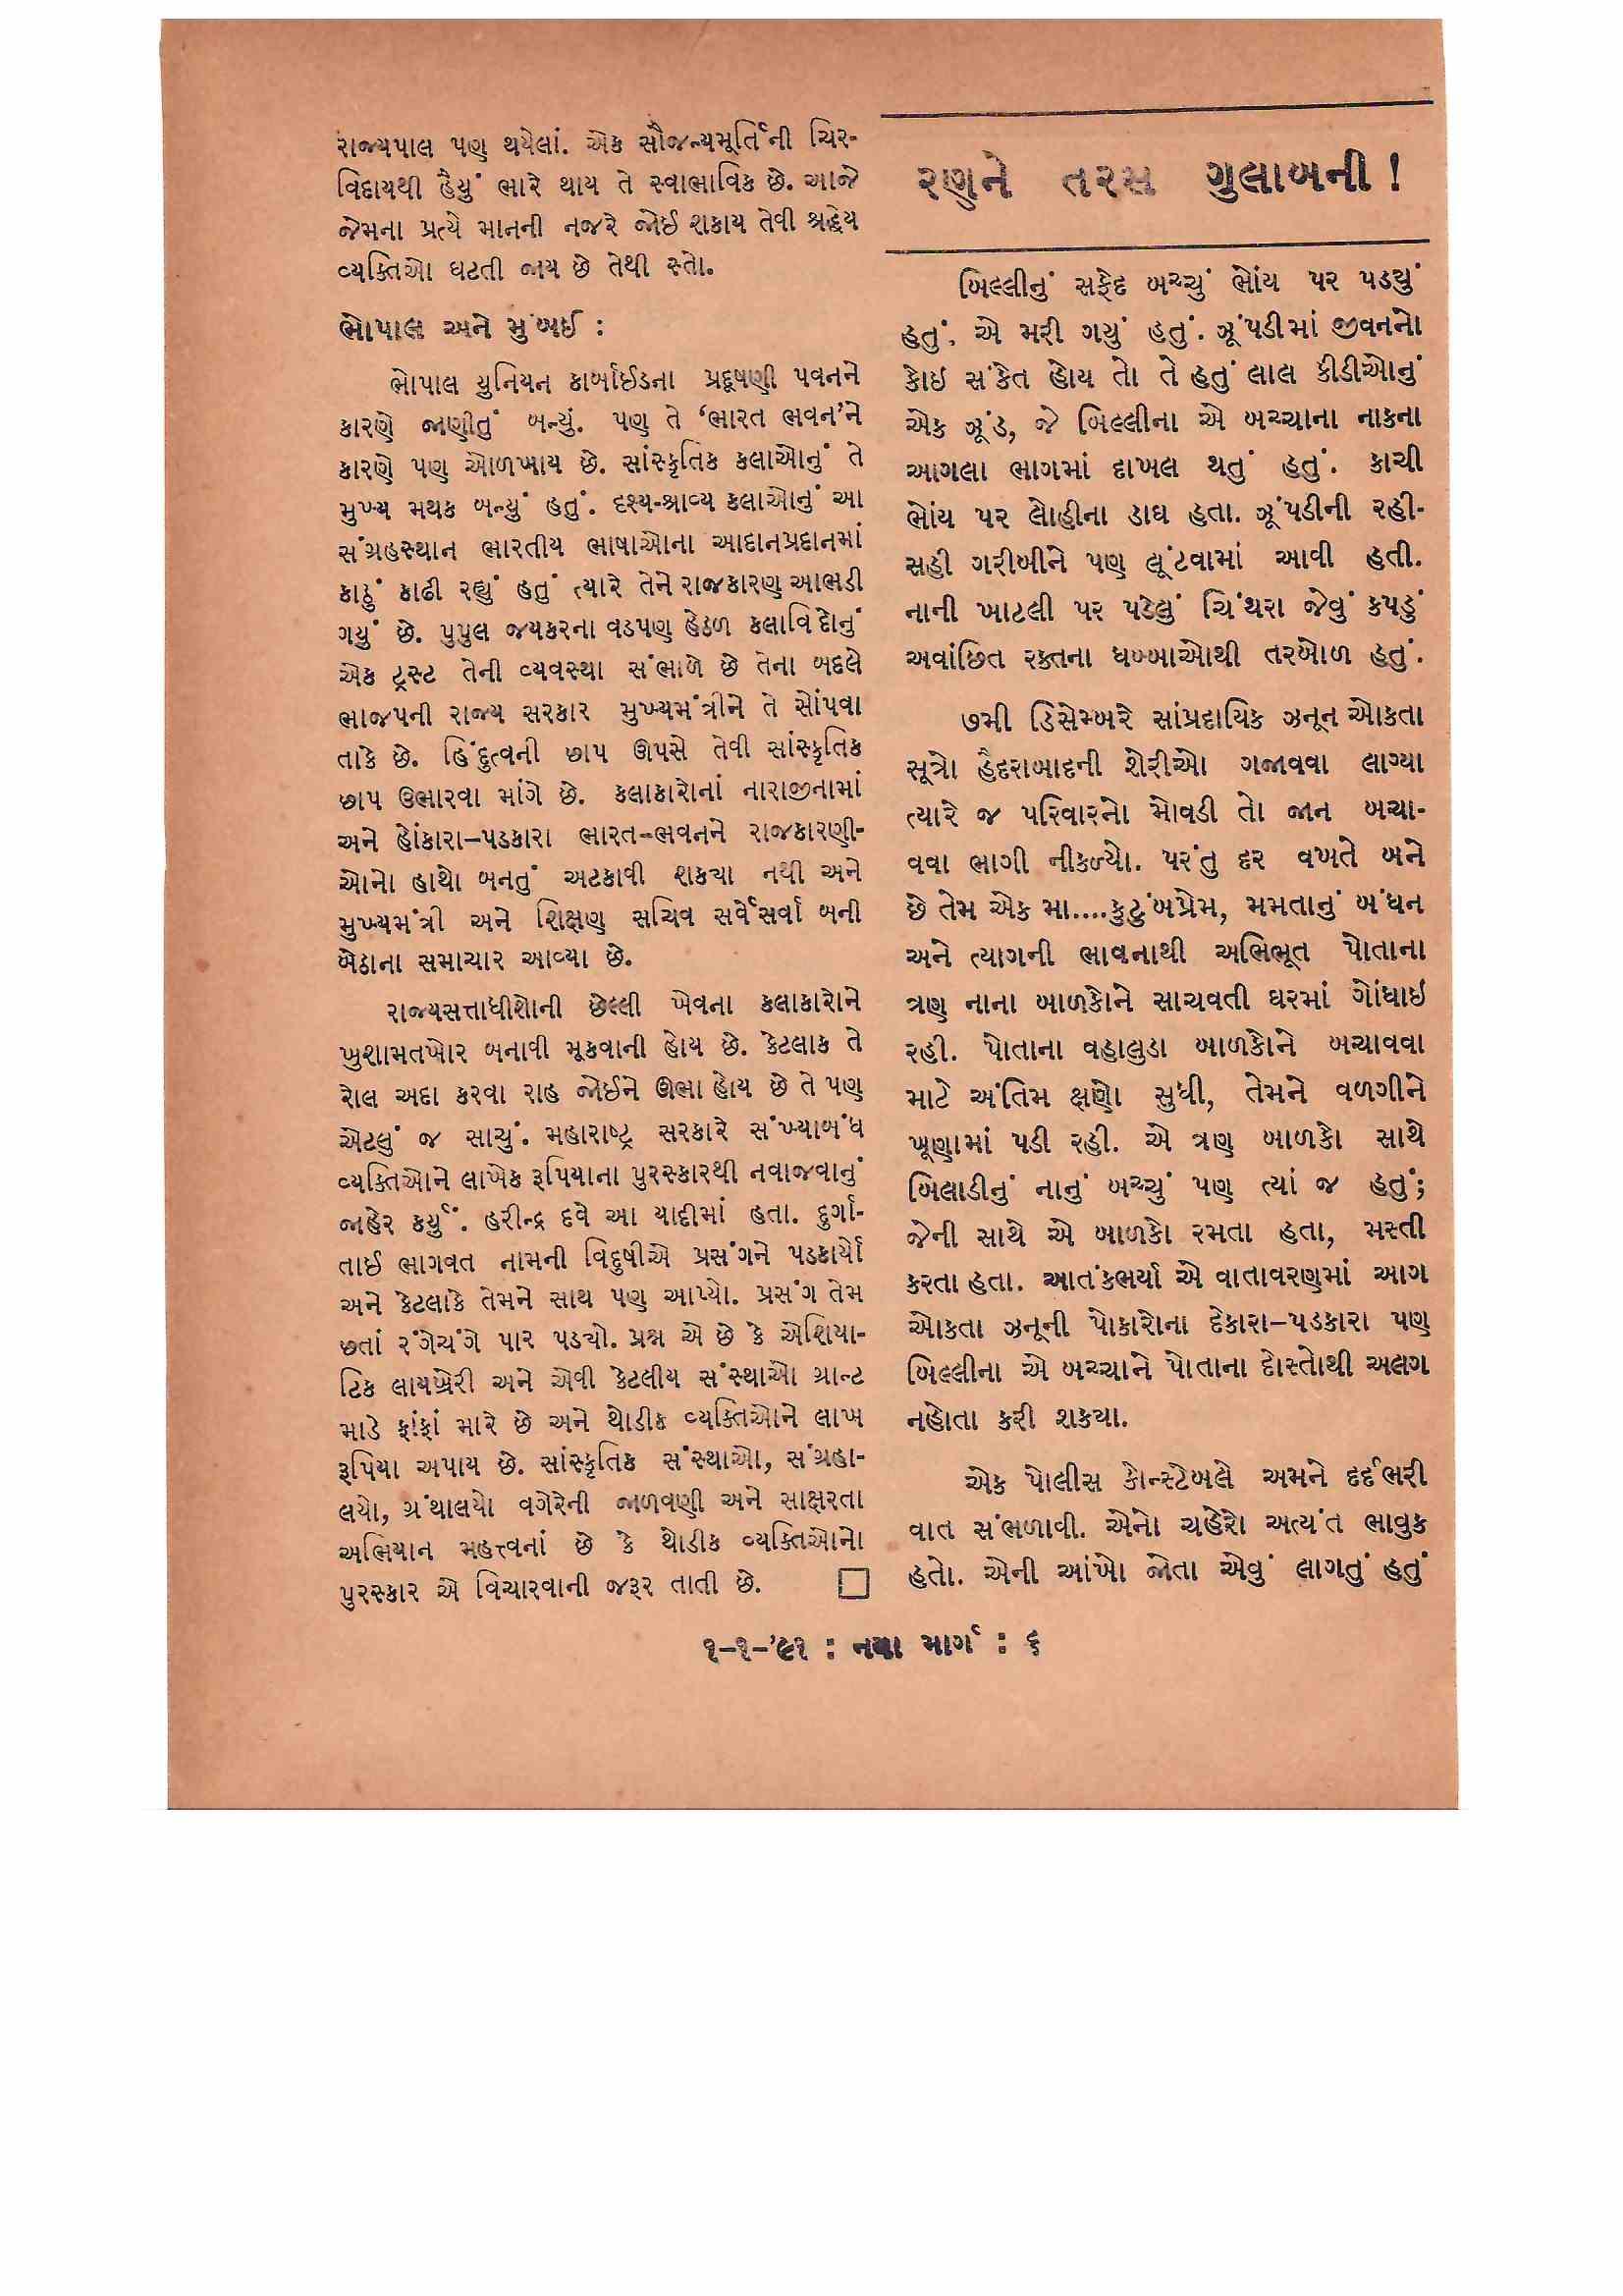 રાજ્યપાલ પણ થયેલાં. એક સૌજન્યમૂર્તિની ચિર-
વિદાયથી હૈયું ભારે થાય તે સ્વાભાવિક છે. આજે
જેમના પ્રત્યે માનની નજરે જોઈ શકાય તેવી શ્રદ્ધેય
વ્યક્તિઓ ઘટતી જાય છે તેથી સ્તો.
ભોપાલ અને મુંબઈ :
ભોપાલ યુનિયન કાર્બાઈડના પ્રદૂષણી પવનને
કારણે જાણીતું બન્યું. પણ તે ‘ભારત ભવન’ને
કારણે પણ ઓળખાય છે. સાંસ્કૃતિક કલાઓનું તે
મુખ્ય મથક બન્યું હતું. દશ્ય-શ્રાવ્ય કલાઓનું આ
સંગ્રહસ્થાન ભારતીય ભાષાઓના આદાનપ્રદાનમાં
કાઠું કાઢી રહ્યું હતું ત્યારે તેને રાજકારણ આભડી
ગયું છે. પુપુલ જયકરના વડપણ હેઠળ કલાવિદોનું
એક ટ્રસ્ટ તેની વ્યવસ્થા સંભાળે છે તેના બદલે
ભાજપની રાજ્ય સરકાર મુખ્યમંત્રીને તે સોંપવા
તાકે છે. હિંદુત્વની છાપ ઊપસે તેવી સાંસ્કૃતિક
છાપ ઉભારવા માંગે છે. કલાકારોનાં નારાજીનામાં
અને હોંકારા–પડકારા ભારત-ભવનને રાજકારણી-
ઓનો હાથો બનતું અટકાવી શકયા નથી અને
મુખ્યમંત્રી અને શિક્ષણ સચિવ સર્વેસર્વા બની
બેઠાના સમાચાર આવ્યા છે.
રાજ્યસત્તાધીશોની છેલ્લી ખેવના કલાકારોને
ખુશામતખોર બનાવી મૂકવાની હોય છે. કેટલાક તે
રોલ અદા કરવા રાહ જોઈને ઊભા હોય છે તે પણ
એટલું જ સાચું. મહારાષ્ટ્ર સરકારે સંખ્યાબંધ
વ્યક્તિઓને લાખેક રૂપિયાના પુરસ્કારથી નવાજવાનું
જાહેર કર્યું. હરીન્દ્ર દવે આ યાદીમાં હતા. દુર્ગા-
તાઈ ભાગવત નામની વિદુષીએ પ્રસંગને પડકાર્યો
અને કેટલાકે તેમને સાથ પણ આપ્યો. પ્રસંગ તેમ
છતાં રંગેચંગે પાર પડ્યો. પ્રશ્ન એ છે કે એશિયા-
ટિક લાયબ્રેરી અને એવી કેટલીય સંસ્થાઓ ગ્રાન્ટ
માડે ફાંફાં મારે છે અને થોડીક વ્યક્તિઓને લાખ
રૂપિયા અપાય છે. સાંસ્કૃતિક સંસ્થાઓ, સંગ્રહા-
લયો, ગ્રંથાલયો વગેરેની જાળવણી અને સાક્ષરતા
અભિયાન મહત્ત્વનાં છે કે થોડીક વ્યક્તિઓનો
પુરસ્કાર એ વિચારવાની જરૂર તાતી છે.
રણને તરસ ગુલાબની !
બિલ્લીનું સફેદ બચ્ચું ભોંય પર પડ્યું
હતું. એ મરી ગયું હતું. ઝૂંપડીમાં જીવનનો
કોઇ સંકેત હોય તો તે હતું લાલ કીડીઓનું
એક ઝૂંડ, જે બિલ્લીના એ બચ્ચાના નાકના
આગલા ભાગમાં દાખલ થતું હતું. કાચી
ભોંય પર લોહીના ડાઘ હતા. ઝૂંપડીની રહી-
સહી ગરીબીને પણ લૂંટવામાં આવી હતી.
નાની ખાટલી પર પડેલું ચિંથરા જેવું કપડું
અવાંછિત રક્તના ધબ્બાઓથી તરબોળ હતું.
૭મી ડિસેમ્બરે સાંપ્રદાયિક ઝનૂન ઓકતા
સૂત્રો હૈદરાબાદની શેરીઓ ગજાવવા લાગ્યા
ત્યારે જ પરિવારનો મોવડી તો જાન બચા-
વવા ભાગી નીકળ્યો. પરંતુ દર વખતે બને
છે તેમ એક મા....કુટુંબપ્રેમ, મમતાનું બંધન
અને ત્યાગની ભાવનાથી અભિભૂત પોતાના
ત્રણ નાના બાળકોને સાચવતી ઘરમાં ગોંધાઇ
રહી. પોતાના વહાલુડા બાળકોને બચાવવા
માટે અંતિમ ક્ષણો સુધી, તેમને વળગીને
ખૂણામાં પડી રહી. એ ત્રણ બાળકો સાથે
બિલાડીનું નાનું બચ્ચું પણ ત્યાં જ હતું;
જેની સાથે એ બાળકો રમતા હતા, મસ્તી
કરતા હતા. આતંકભર્યા એ વાતાવરણમાં આગ
ઓકતા ઝનૂની પોકારોના દેકારા–પડકારા પણ
બિલ્લીના એ બચ્ચાને પોતાના દોસ્તોથી અલગ
નહોતા કરી શકયા.
એક પોલીસ કોન્સ્ટેબલે અમને દર્દભરી
વાત સંભળાવી. એનો ચહેરો અત્યંત ભાવુક
હતો. એની આંખો જોતા એવું લાગતું હતું
૧–૧–'૯૧ : નયા માર્ગ : ૬